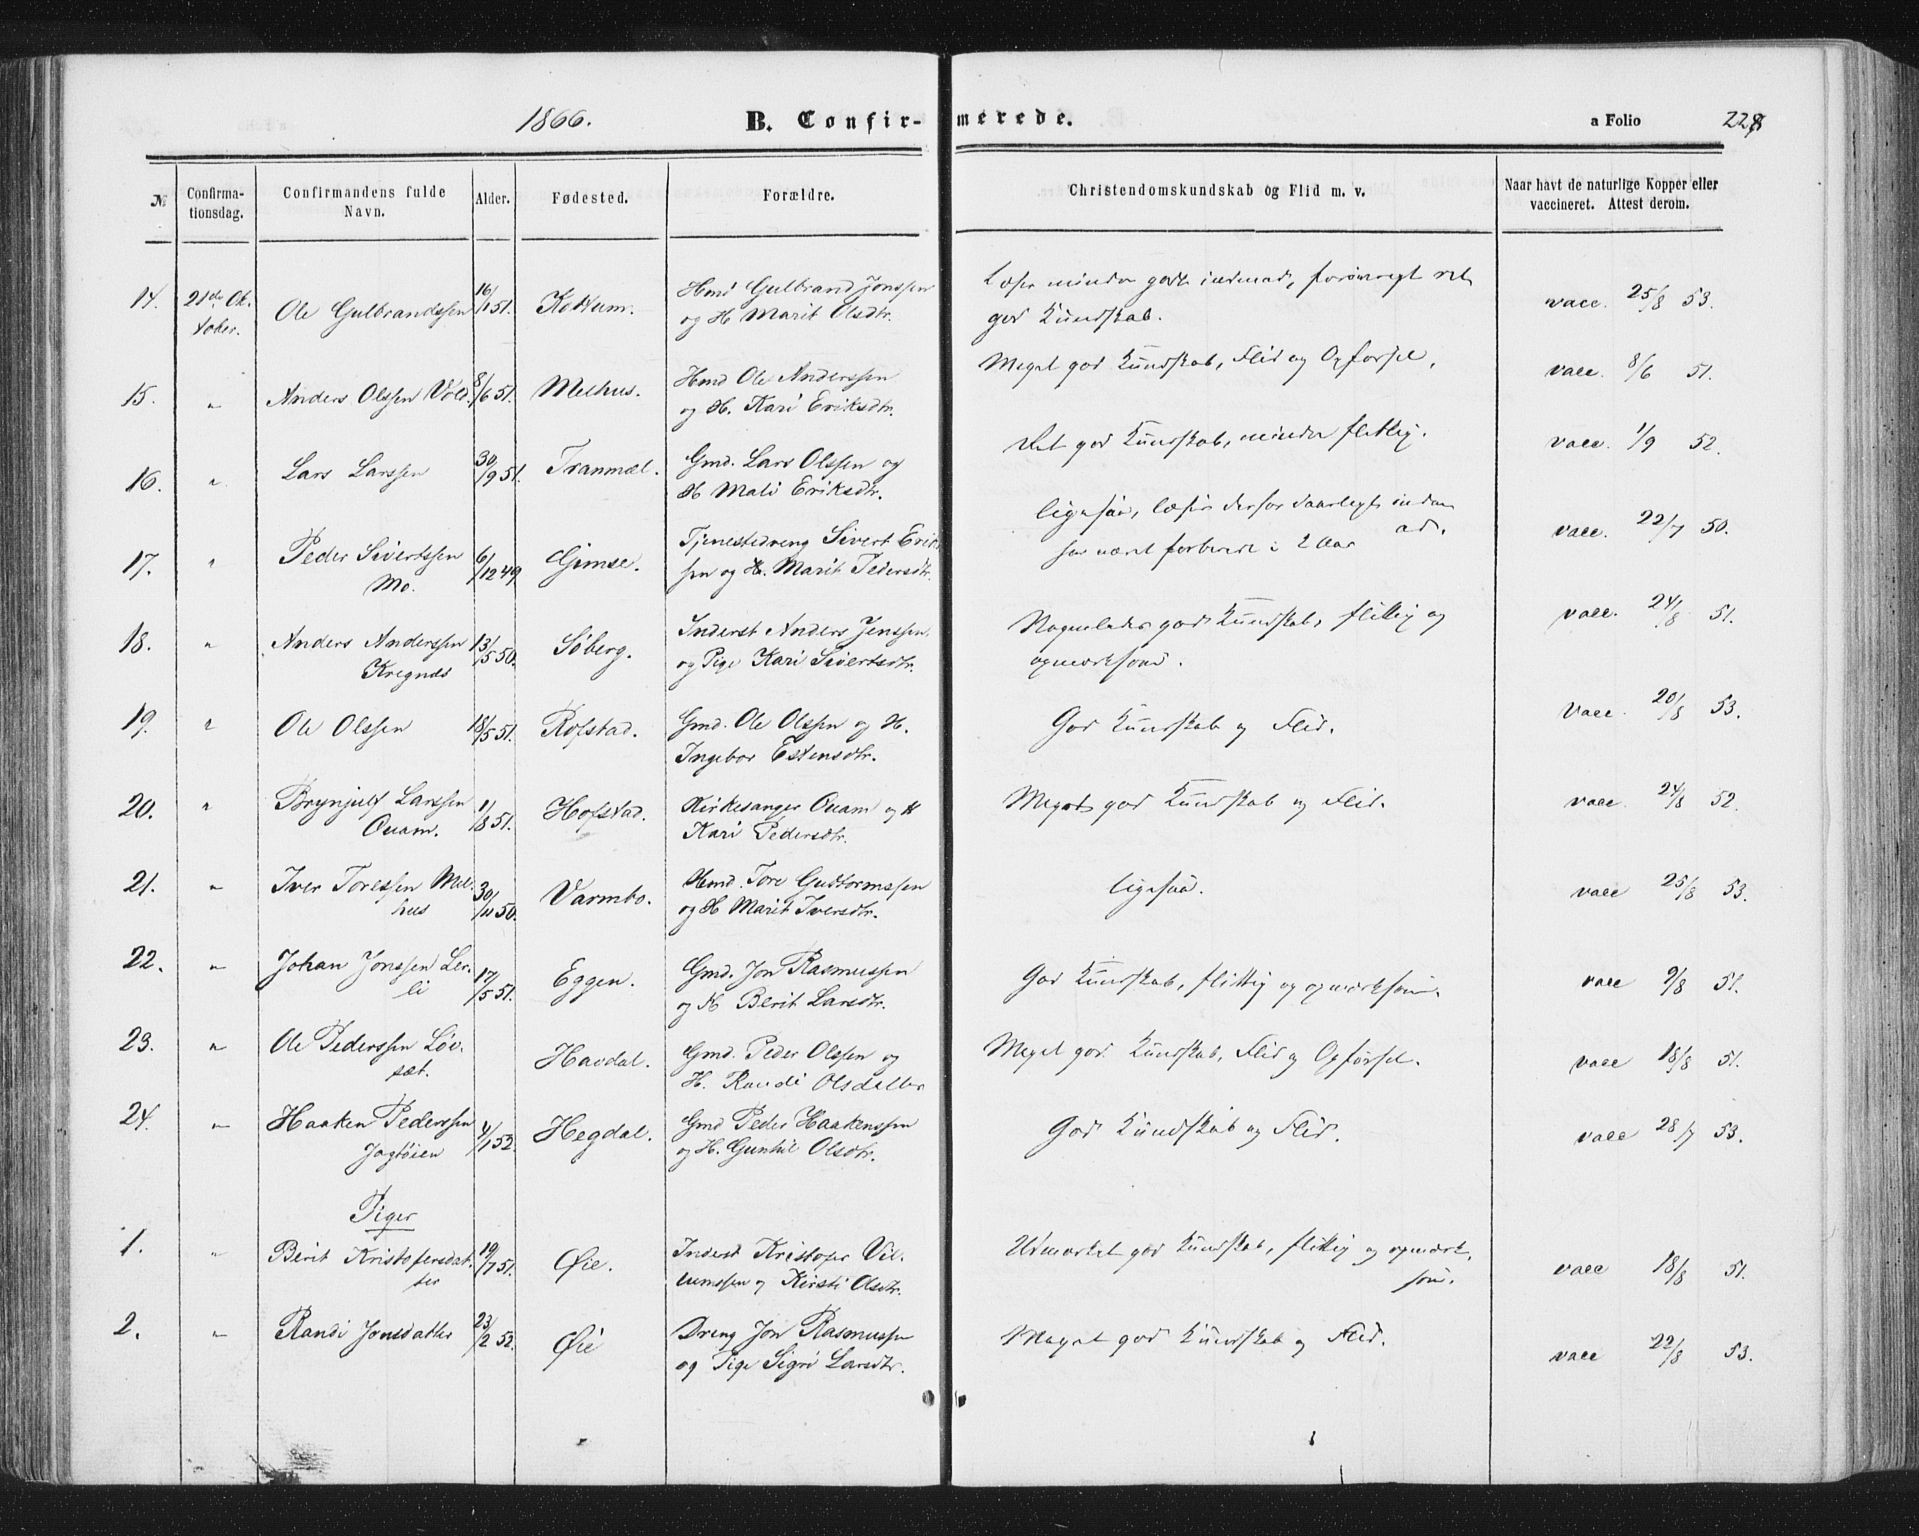 1866.
B. Confir-merede.
a Folio 228
№
Confirma-
tionsdag.
Confirmandens fulde
Navn.
Alder.
Fødested.
Forældre.
Christendomskundskab og Flid m. v.
Naar havt de naturlige Kopper eller
vaccineret. Attest derom.
14. 21de Ok-
tober.
Ole Gulbrandssen 16/1 51. Hmd Gulbrand Jonssen
og H Marit Olsdtr.
Læser mindre godt
god Kundskab.
vacc. 25/8 53.
15. " Anders Olssen Vold. 8/6 51. Melhus. Hmd Ole Anderssen
og H. Kari Eriksdtr.
Meget god Kundskab, Flid og Opførsel.
vacc. 8/6 51.
16. " Lars Larssen 30/9 51. Tranmæl. Gmd. Lars Olssen og
H Mali Eriksdtr.
Ret god Kundskab, mindre flittig.
vacc. 1/9 52.
17. " Peder Sivertssen
Mo.
6/12 49 Gimse. Tjenestedreng Sivert Erik-
sen og H. Marit Pedersdtr.
ligesaa, læser derfor daarligt inden-
ad.
har været forberedt i 2 Aar
vacc. 22/7 50.
18. " Anders Anderssen
Kregnes
13/5 50. Søberg. Inderst Anders Jenssen
og Pige Kari Sivertsdtr.
Nogenledes god Kundskab, flittig og
opmærksom.
vacc. 24/8 51.
19. " Ole Olssen 18/5 51. Rofstad. Gmd. Ole Olssen og H.
Ingebor Estensdtr.
God Kundskab og Flid.
vacc. 20/8 53.
20. " Brynjulf Larssen
Qvam.
1/8 51. Hofstad. Kirkesanger Qvam og H
Kari Pedersdtr.
Meget god Kundskab og Flid.
vacc. 24/8 52.
21. " Iver Toressen Mel-
hus
30/11 50. Varmbo. Hmd. Tore Guttormssen
og H Marit Iversdtr.
ligesaa.
vacc 25/8 53.
22. " Johan Jonssen Ler-
li
17/5 51. Eggen. Gmd. Jon Rasmussen
og H Berit Larsdtr.
God Kundskab, flittig og opmærksom.
vacc 9/8 51.
23. " Ole Pederssen Løv-
sæt.
Havdal. Gmd. Peder Olssen og
H. Randi Olsdatter
Meget god Kundskab, Flid og Opførsel.
vacc 18/8 51.
24. " Haaken Pederssen
Jagtøien
4/1 52. Hegdal. Gmd Peder Haakenssen
og H. Gunhil Olsdtr.
God Kundskab og Flid.
vacc 28/7 53.
Piger
1. " Berit Kristofersdat-
ter
19/7 51. Øie. Inderst Kristofer Vil-
lumssen og Kirsti Olsdtr.
Udmærket god Kundskab, flittig og opmærk-
som.
vacc 18/8 51.
2. " Randi Jonsdatter 23/2 52. Øie Dreng Jon Rasmussen
og Pige Sigri Larsdtr.
Meget god Kundskab og Flid.
vacc 22/8 53.